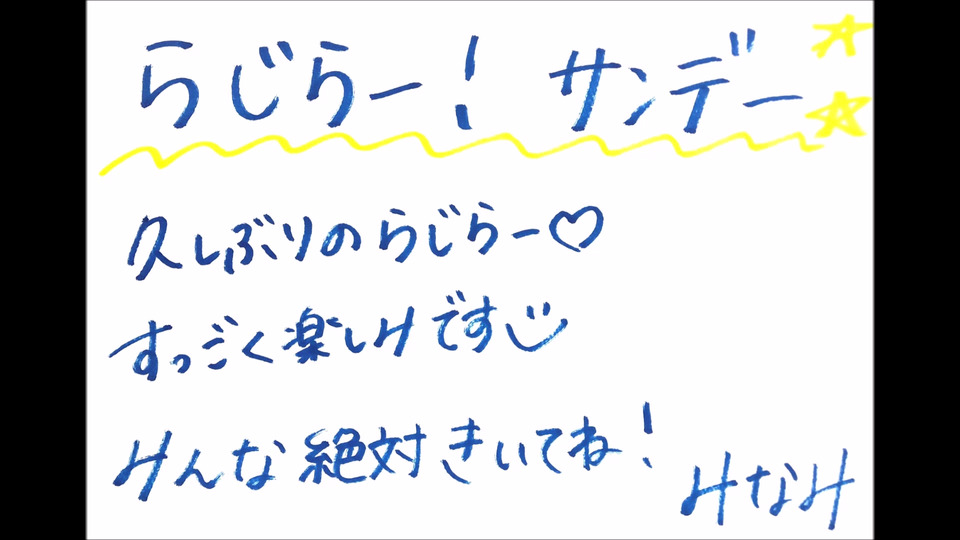 らじらー! サンデー
久しぶりのらじらー♡
すっごく楽しみです
みんな絶対きいてね!
みなみ